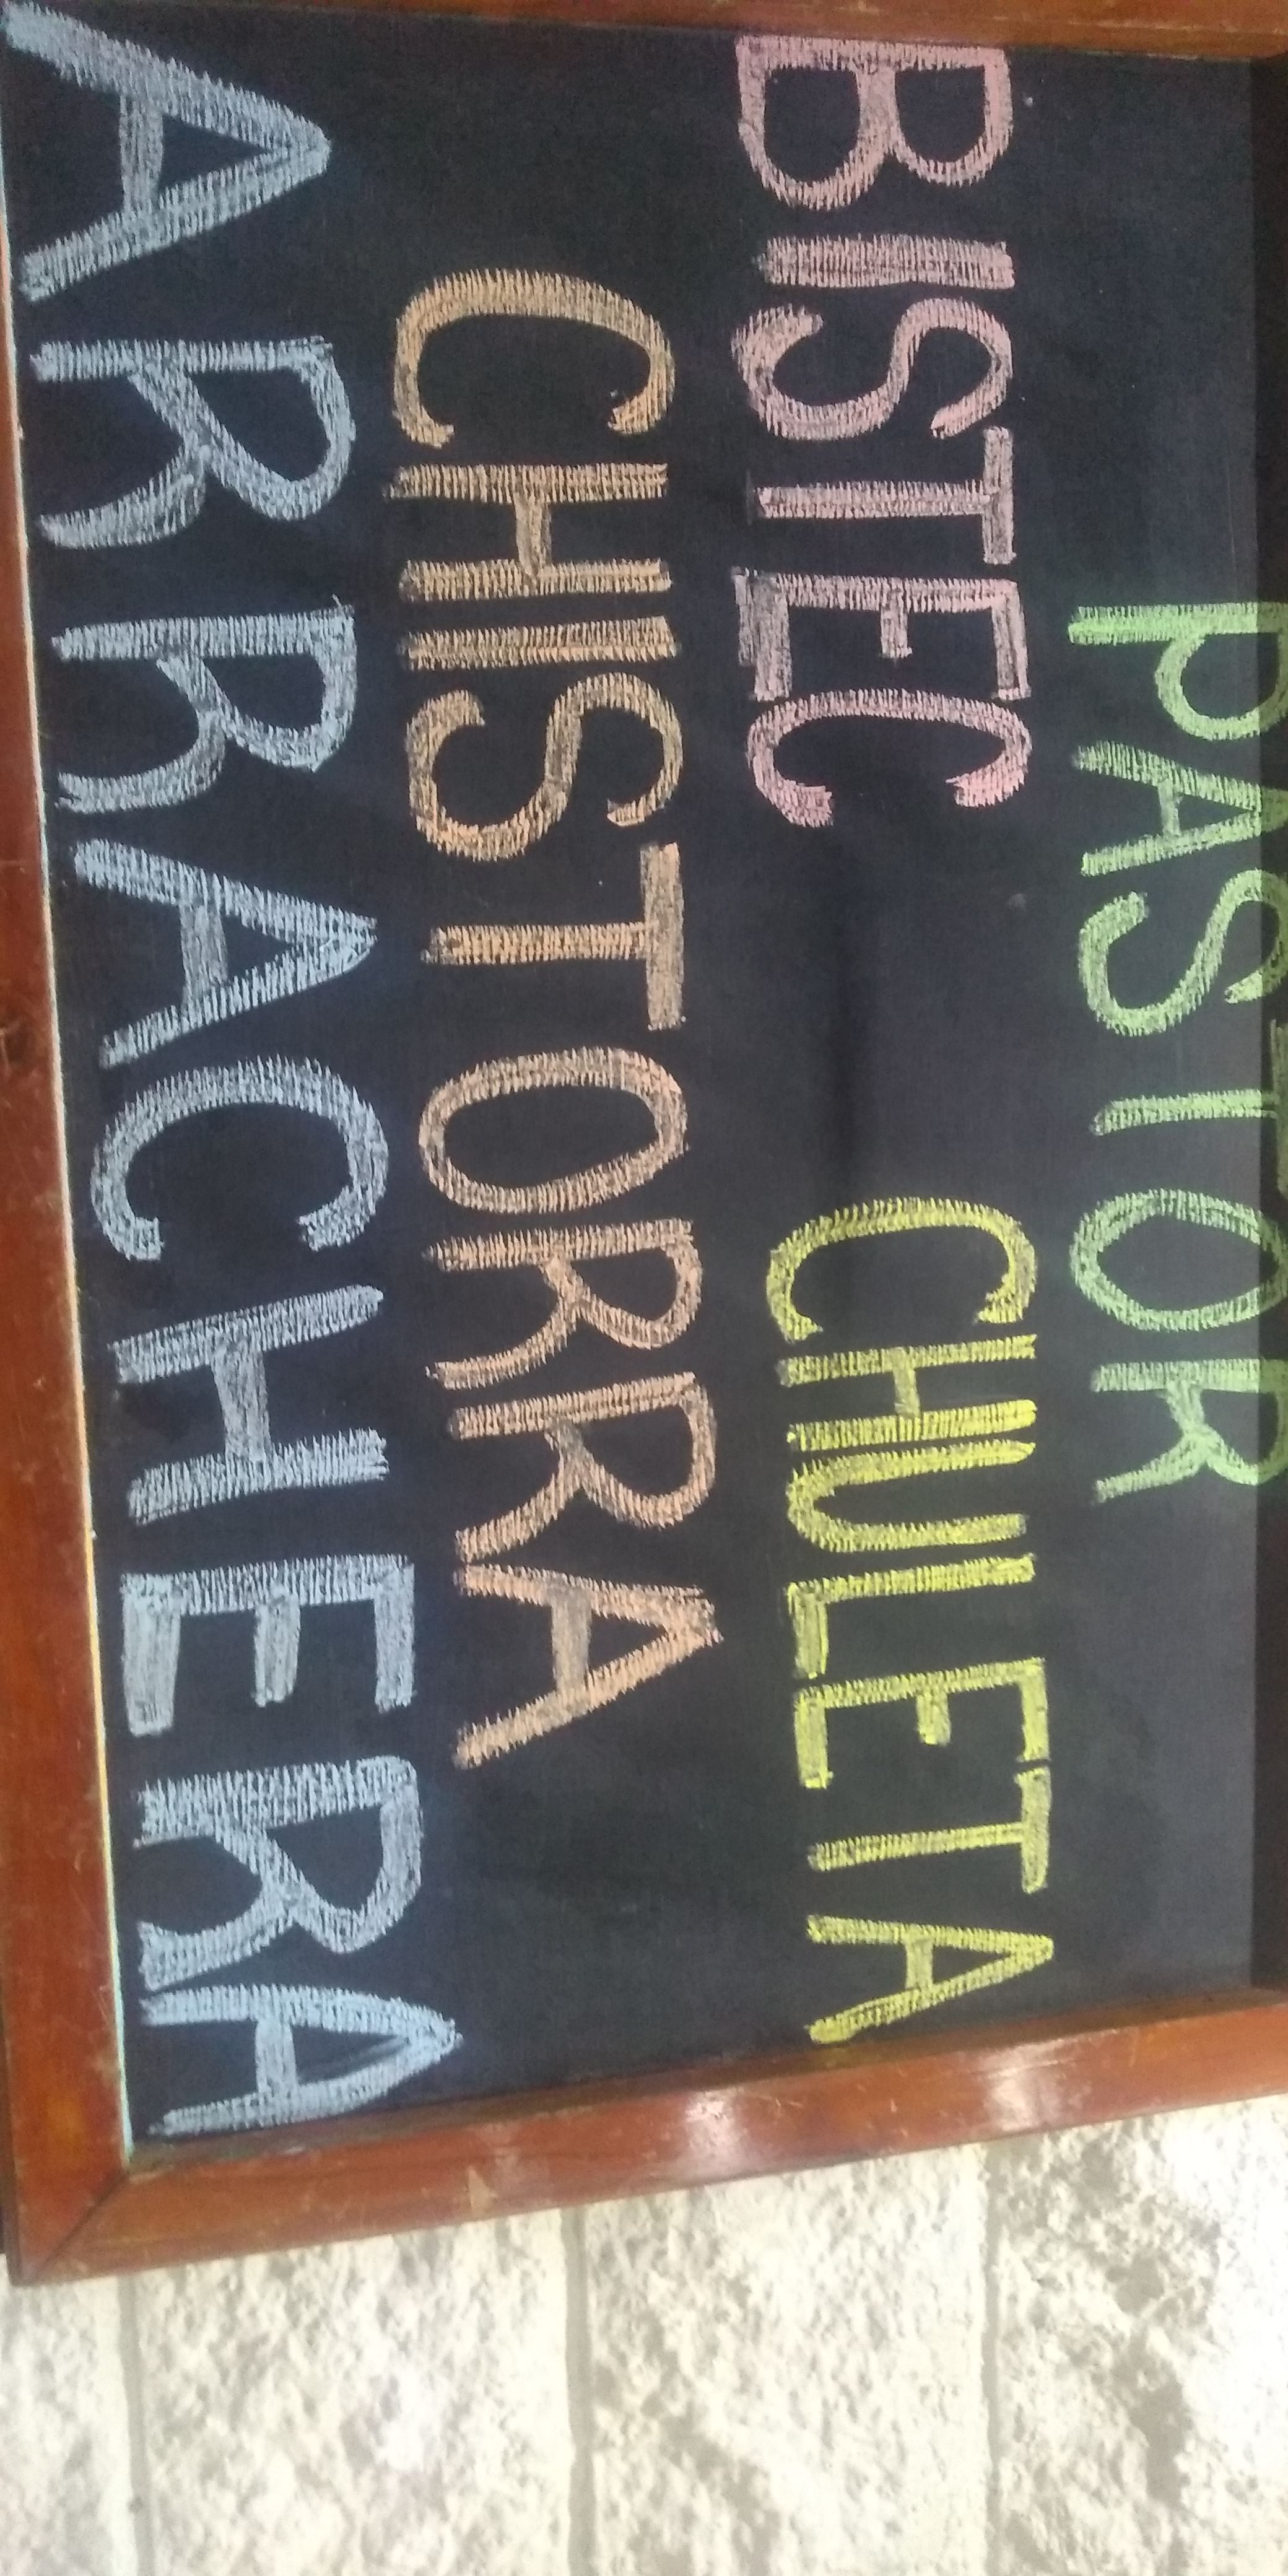 PASTOR
BISTEC CHULETA
CHISTORRA
ARRACHERA